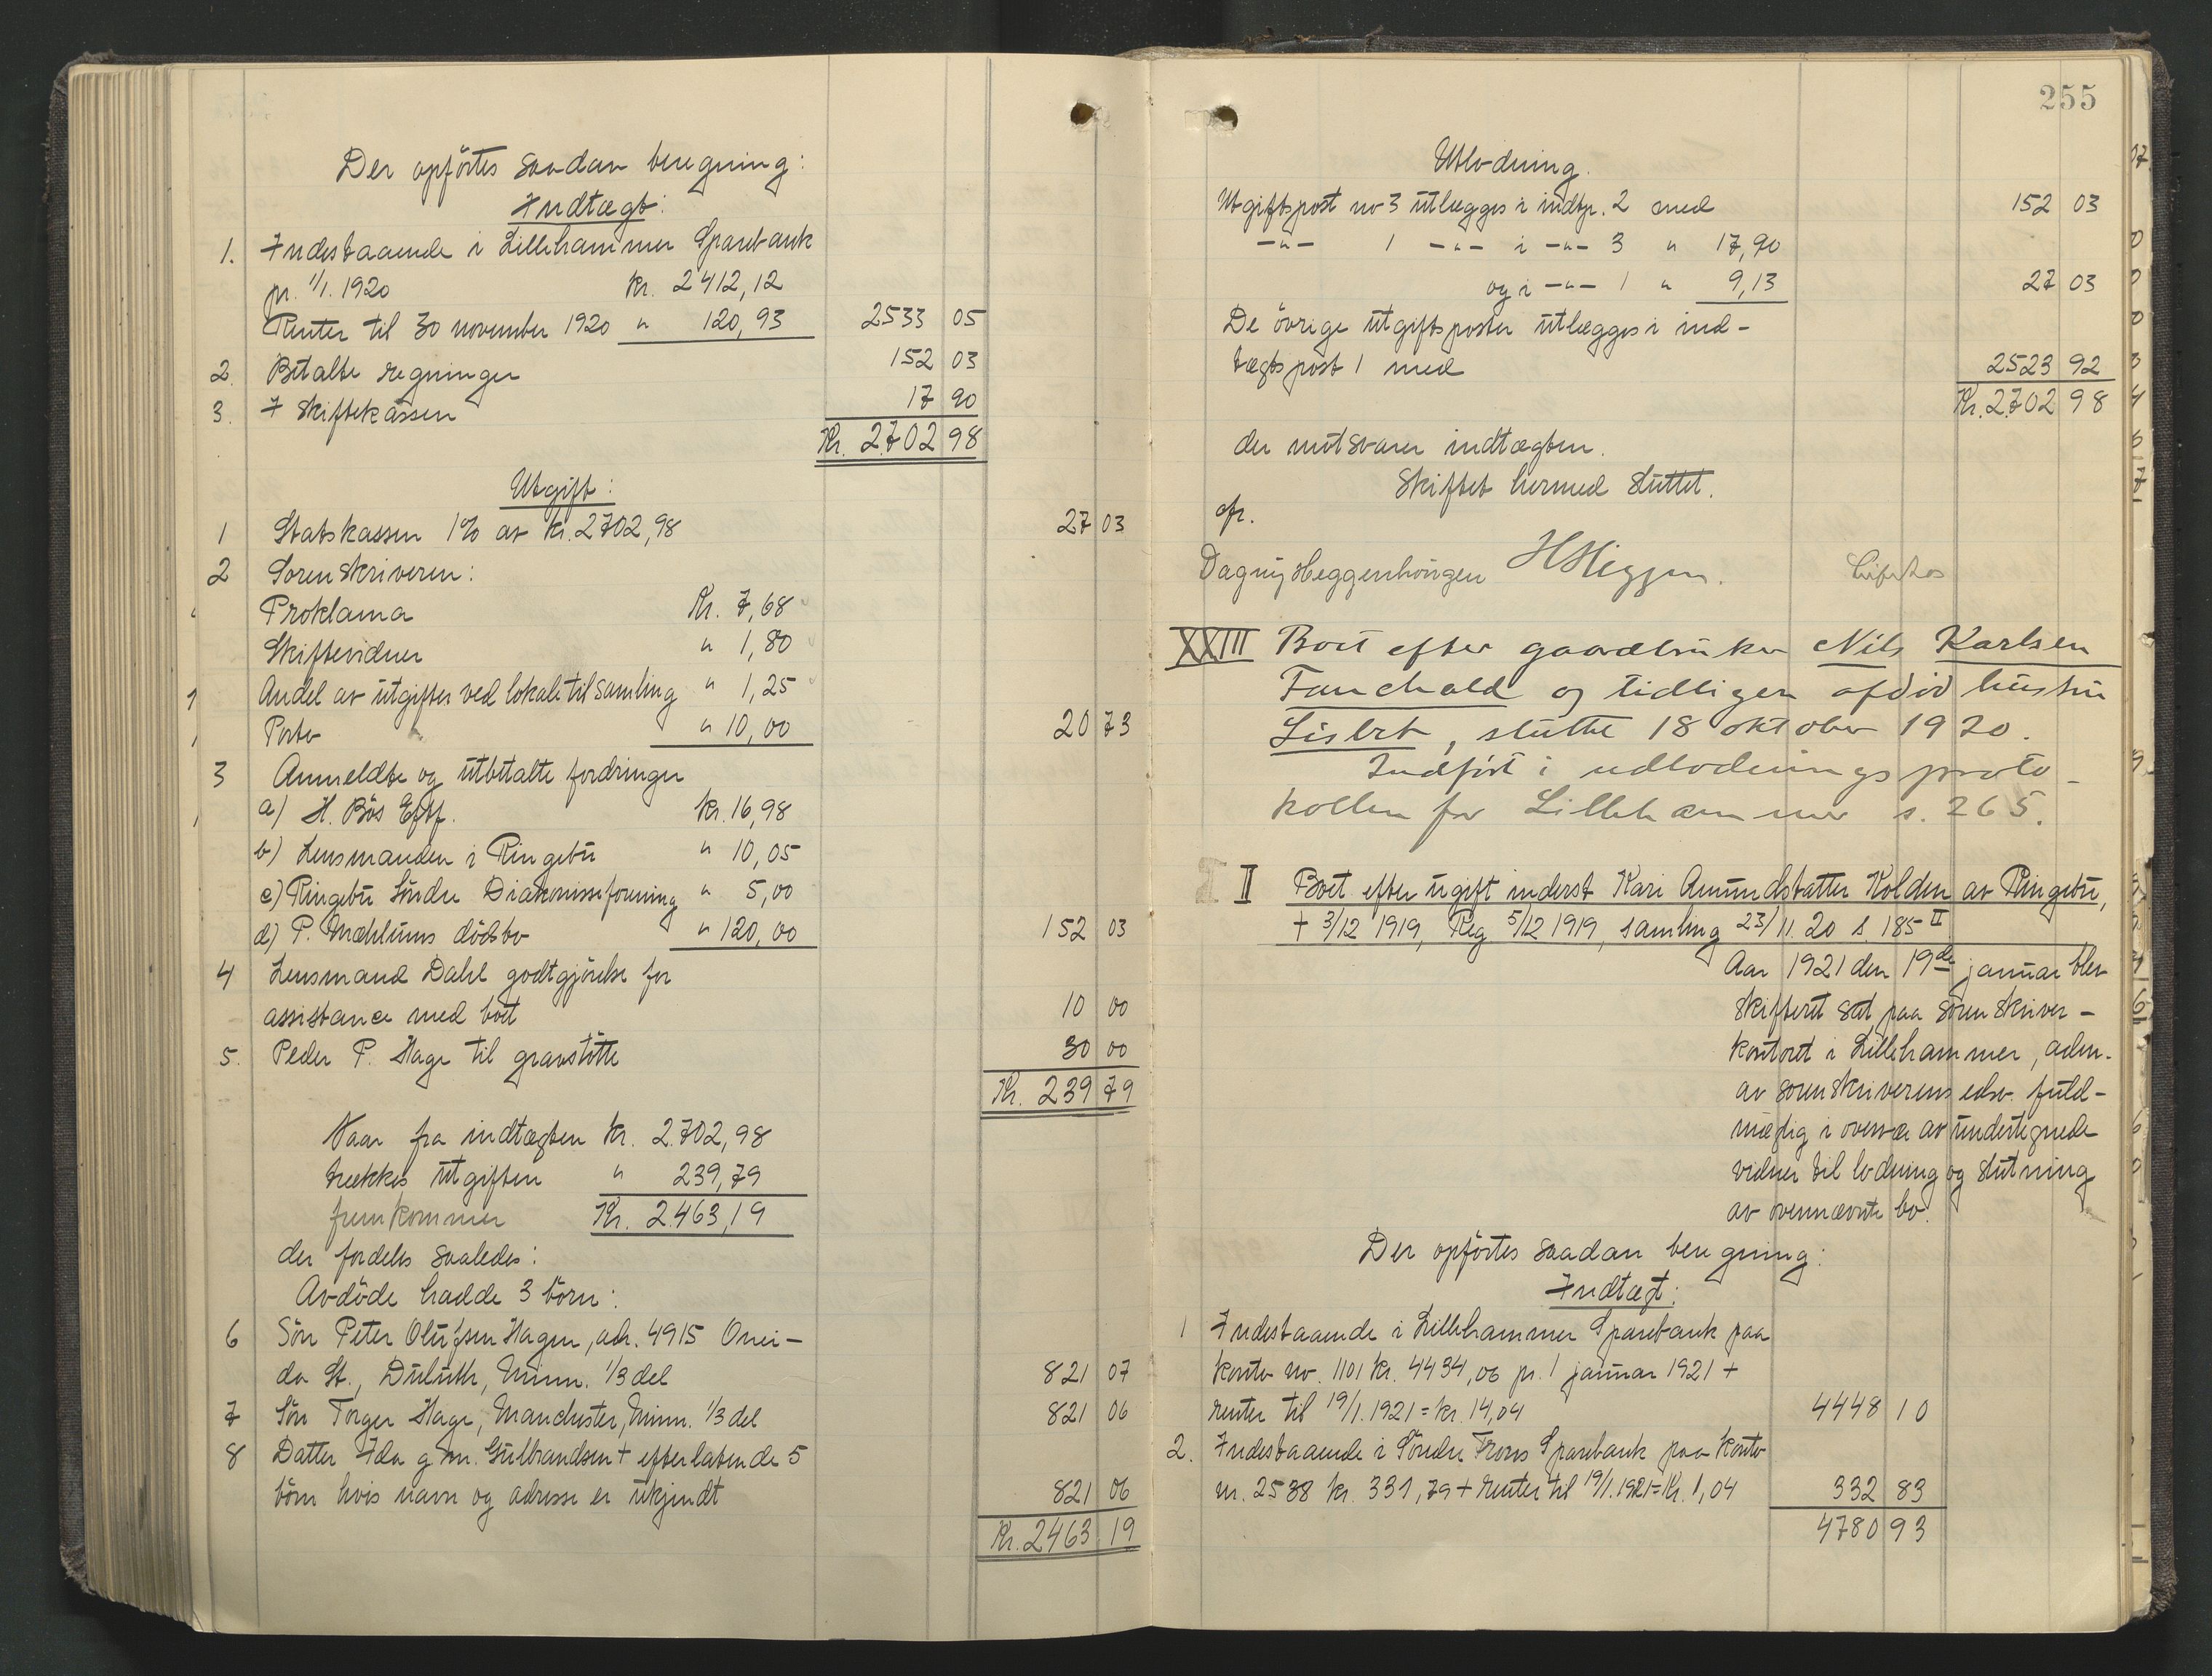 Der opförtes saadan beregning:
Indtægt:
1. Indestaaende i Lillehammer Sparebank
pr. 1/1. 1920 kr. 2412,12
Renter til 30 november 1920 " 120,93 2533 05
2. Betalte regninger 152 03
3. I skiftekassen 17 90
Kr. 2702 98
Utgift:
1 Statskassen 1% av kr. 2702,98 27 03
2 Sorenskriveren:
Proklama Kr. 7,68
Skiftevidner " 1,80
Andel av utgifter ved lokale til samling " 1,25
Porto " 10,00 20 73
3 Anmeldte og utbetalte fordringer
a) H. Bös Eftf. kr. 16,98
b) Lensmanden i Ringebu " 10,05
c) Ringebu Söndre Diakonisseforening " 5,00
d) P. Mæhlums dödsbo " 120,00 152 03
4 Lensmand Dahl godtgjörelse for
assistance med boet 10 00
5. Peder P. Hage til gravstötte 30 00
Kr. 239 79
Naar fra indtægten kr. 2702,98
trækkes utgiften " 239,79
fremkommer Kr. 2463,19
der fordeles saaledes:
Avdöde hadde 3 börn:
6 Sön Peter Olufsen Hagen, adr. 4915 Onei-
da St., Duluth, Minn. 1/3 del 821 07
7 Sön Torger Hage, Manchester, Minn. 1/3 del 821 06
8 Datter Ida g.m. Gulbrandsen + efterlatende 5
börn hvis navn og adresse er ukjendt 821 06
Kr. 2463 19
255
Utlodning.
Utgiftspost no 3 utlægges i indtp. 2 med 152 03
-"- 1 -"- i -"- 3 " 17,90
og i -"- 1 " 9,13 27 03
De övrige utgiftsposter utlægges i ind-
tægtspost 1 med 2523 92
Kr. 2702 98
der motsvarer indtægten.
Skiftet hermed sluttet.
cfr.
Dagny Heggenhougen
XXIII Boet efter gaardbruker Nils Karlsen
Fauchald og tidligere afdöd hustru
Lisbet, sluttet 18 oktober 1920.
Indfört i udlodningsproto-
kollen for Lillehammer s. 265.
II Boet efter ugift inderst Kari Amundsdatter Kolden av Ringebu,
+ 3/12 1919, Reg 5/12 1919, samling 23/11. 20 s. 185 II
Aar 1921 den 19de januar blev
skifteret sat paa sorenskriver-
kontoret i Lillehammer, adm.
av sorenskriverens edsv. fuld-
mægtig i overvær av undertegnede
vidner til lodning og slutning
av ovennævnte bo.
Der opförtes saadan beregning:
Indtægt:
1 Indestaaende i Lillehammer Sparebank paa
konto no. 1101 kr. 4434,06 pr. 1 januar 1921 +
renter til 19/1. 1921 = kr. 14,04 4448 10
2. Indestaaende i Söndre Frons Sparebank paa konto
nr. 2538 kr. 331,79 + renter til 19/1. 1921 = Kr. 1,04 332 83
4780 93